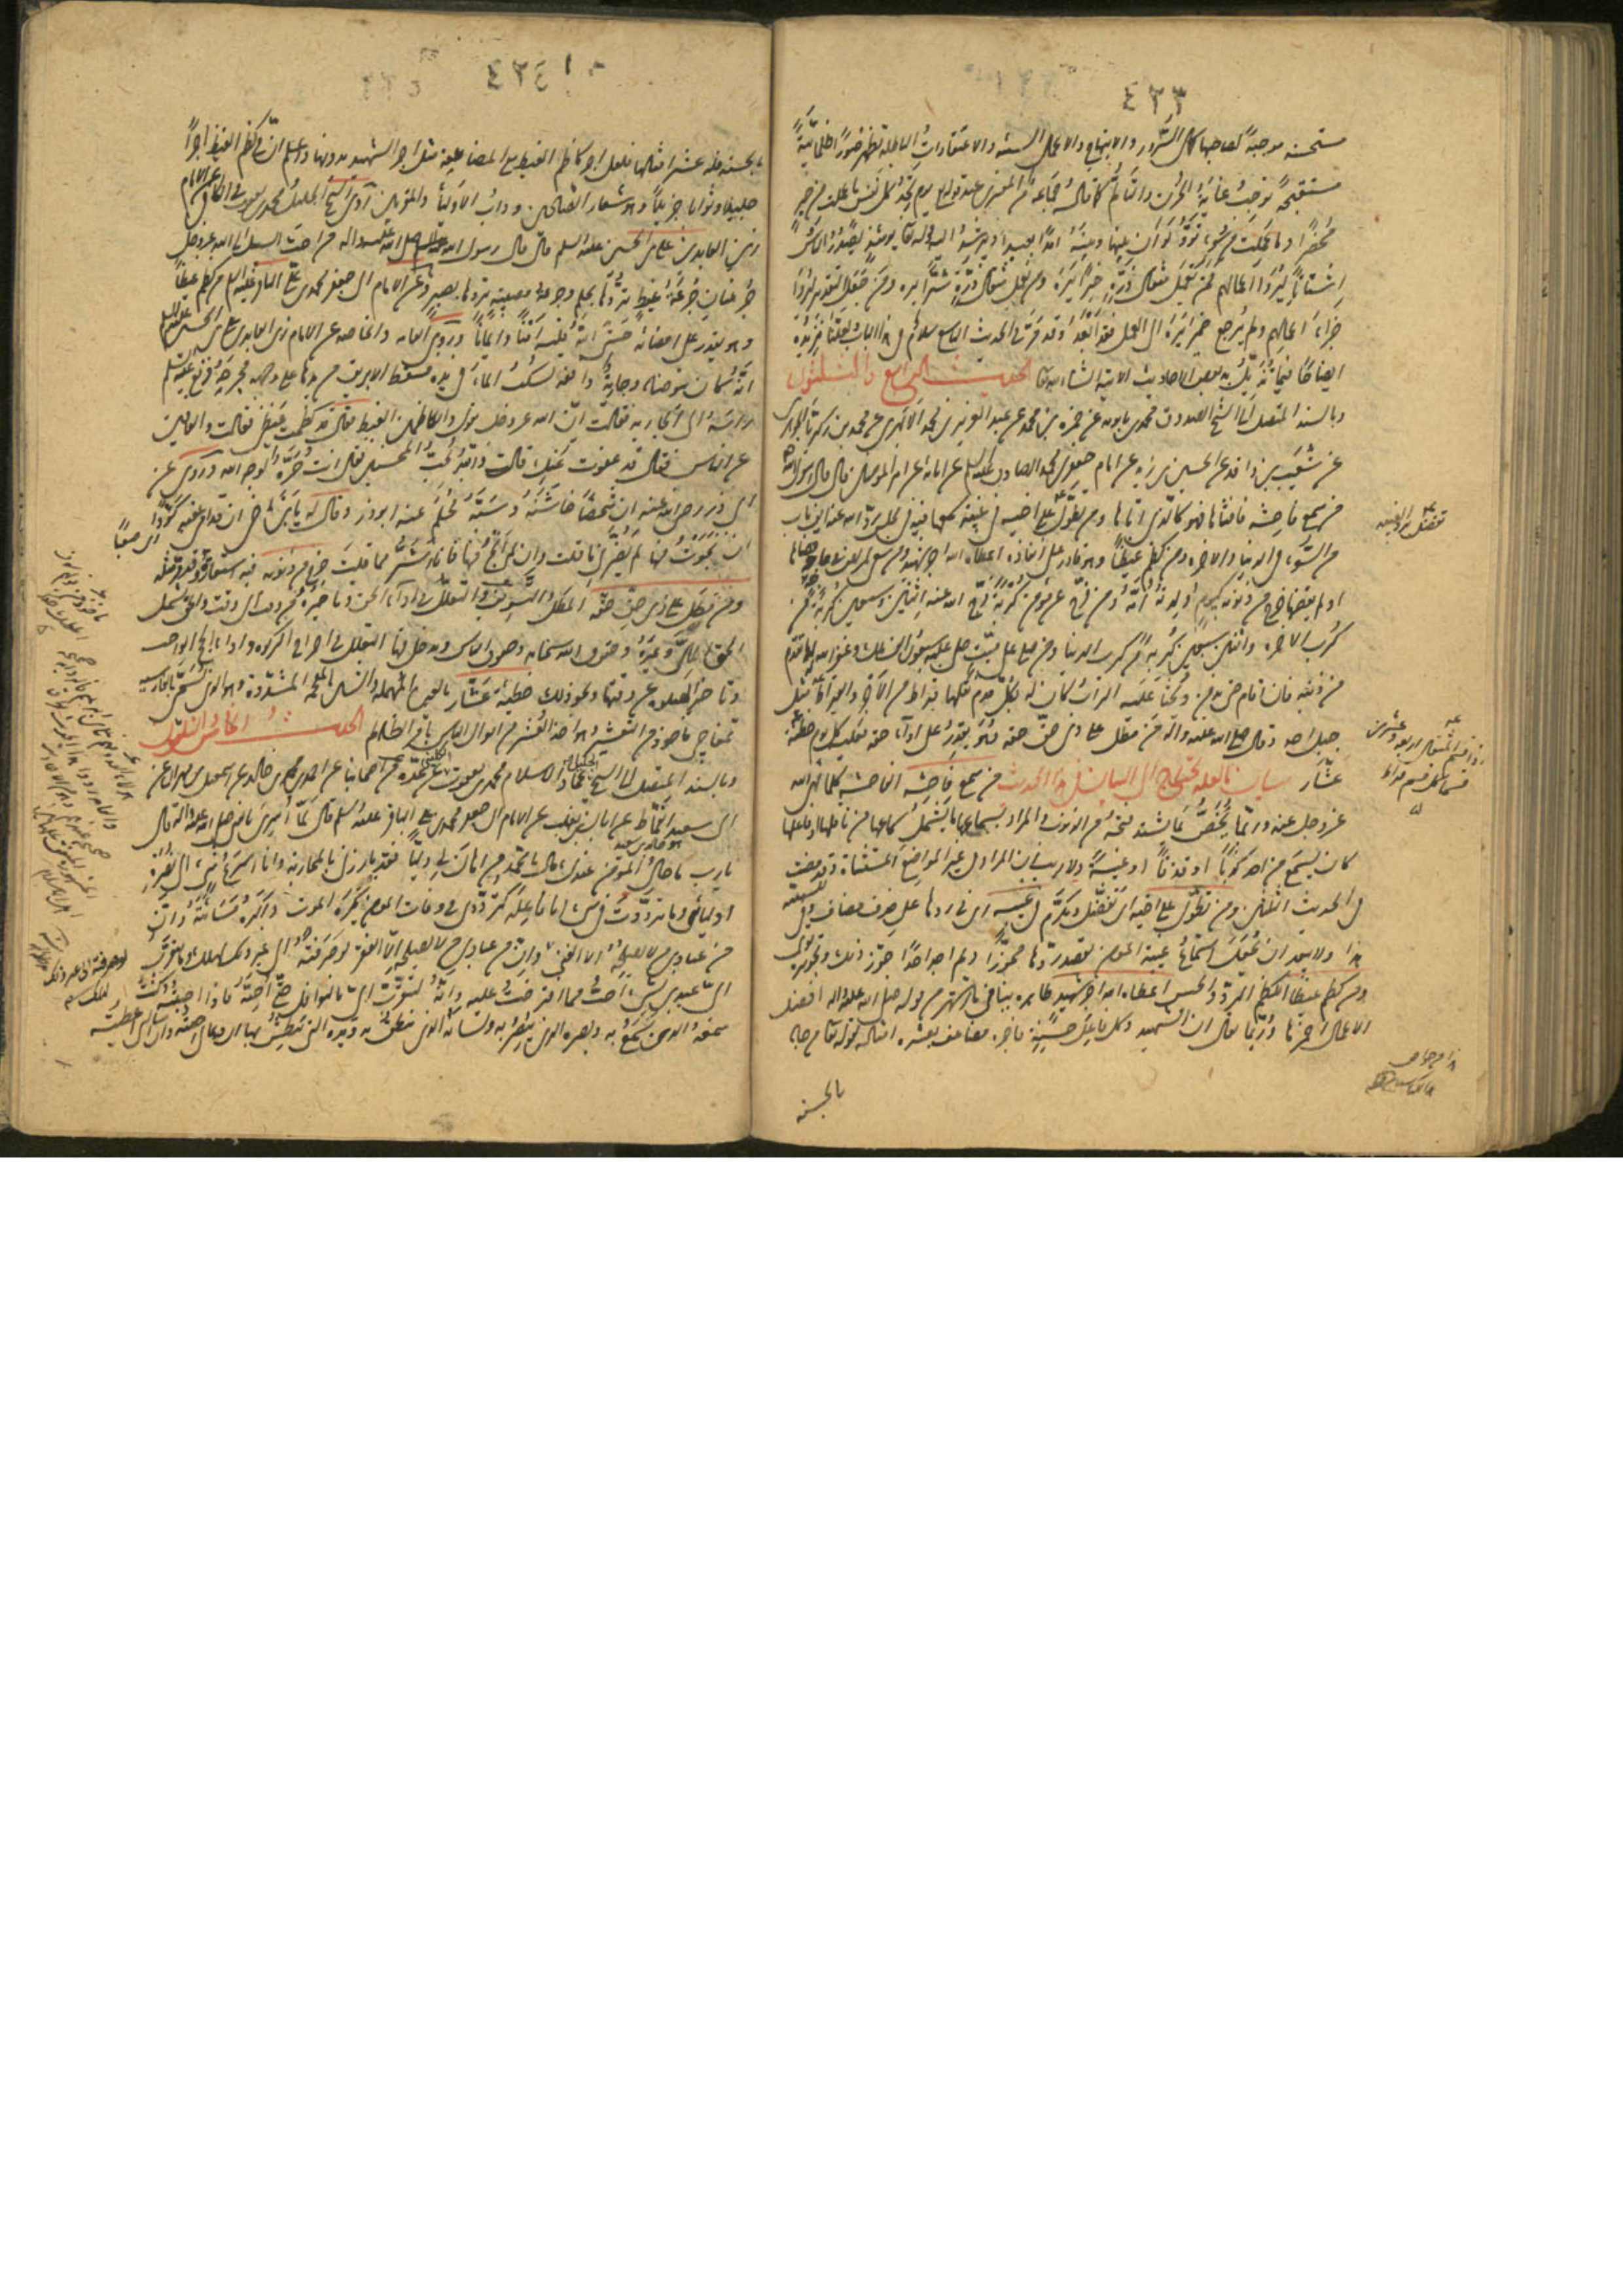 ٤٢٣
مستحسنة موجبة لصاحبها كمال السرور والابتهاج والاعمال السيئة والاعتقادات الباطلة تظهر صورا ظلمانية
مستقبحة توجب غاية الحزن والتألم كما قاله جماعة من المفسرين عند قوله تعالى يوم تجد كل نفس ما عملت من خير
محضرا وما عملت من سوء تود لو ان بينها وبينه امدا بعيدا ويرشد اليه قوله تعالى يومئذ يصدر الناس
اشتاتا ليروا اعمالهم فمن يعمل مثقال ذرة خيرا يره ومن يعمل مثقال ذرة شرا يره ومن جعل التقدير ليروا
جزاء اعمالهم ولم يرجع ضمير يره الى العمل فقد ابعد وقد مر في الحديث التاسع كلام في هذا الباب ولعلنا نزيده
ايضاحا فيما نتلوه من بعض الاحاديث الاتية ان شاء الله تعالى الحديث الرابع والثلثون
وبالسند المتصل الى الشيخ الصدوق محمد بن بابويه عن حمزة بن محمد عن عبد العزيز بن محمد الابهري عن محمد بن زكريا الجوهري
عن شعيب بن واقد عن الحسين بن زيد عن الامام جعفر بن محمد الصادق عليه السلام عن ابائه عن امير المؤمنين قال قال رسول الله
من سمع فاحشة فافشاها فهو كالذي اتاها ومن تطول على اخيه في غيبة سمعها فيه في مجلس رد الله عنه الف باب
من السوء في الدنيا والاخرة ومن كظم غيظا وهو قادر على انفاذه اعطاه الله اجر شهيد ومن سعى لمريض في حاجة قضاها
او لم يقضها خرج من ذنوبه كيوم ولدته امه ومن فرج عن مؤمن كربة فرج الله عنه اثنين وسبعين كربة من
كرب الاخرة واثنتين وسبعين كربة من كرب الدنيا ومن صلى على ميت صلى عليه سبعون الف ملك وغفر الله له ما تقدم
من ذنبه فان اقام حتى يدفن ويحثا عليه التراب كان له بكل قدم نقلها قيراط من الاجر والقيراط مثل
جبل احد وقال صلى الله عليه واله من مطل على ذي حق حقه وهو يقدر على اداء حقه فعليه كل يوم خطيئة
عشار بيان ما لعله يحتاج الى البيان في هذا الحديث من سمع فاحشة الفاحشة كل ما نهى الله
عز وجل عنه وربما يخص بما يشتد قبحه من الذنوب والمراد بسماعها ما يشمل سماعها من فاعلها او فاعلها
كان يسمع من احد كذبا او قذفا او غيبة ولا ريب في ان المراد في غير المواضع المستثناة وقد مضت
في الحديث الثلثين ومن تطول على اخيه اي تفضل وتكرم في غيبته اي في ردها على حذف مضاف
هذا ولا يبعد ان يكون استماع غيبة المؤمن بقصد ردها مجوزا ولم اجد احدا جوز ذلك
ومن كظم غيظا الكظم الرد والحبس اعطاه الله اجر شهيد ظاهره ينافي ما اشتهر من قوله صلى الله عليه واله افضل
الاعمال احمزها وربما يقال ان الشهيد وكل فاعل حسنة فاجره مضاعف بعشرة امثاله لقوله تعالى من جاء
بالحسنة
تفضل برد الغيبة
٤٢٤
بالحسنة فله عشر امثالها فلعل اجر كاظم الغيظ مع المضاعفة مثل اجر الشهيد بدونها واعلم ان في كظم الغيظ اجرا
جليلا وثوابا جزيلا وهو شعار الصالحين وداب الاولياء والمقربين روى الشيخ الجليل محمد بن يعقوب في الكافي عن الامام
زين العابدين علي بن الحسين عليه السلم قال قال رسول الله صلى الله عليه واله من احب السبيل الى الله عز وجل
جرعتان جرعة غيظ تردها بحلم وجرعة مصيبة تردها بصبر وعن الامام ابي جعفر محمد بن علي الباقر عليه السلم من كظم غيظا
وهو يقدر على امضائه حشى الله قلبه امنا وايمانا وروى العامة والخاصة عن الامام زين العابدين علي بن الحسين
انه كان يتوضأ وجارية واقفة تسكب الماء في يده فسقط الابريق من يدها على وجهه فجرحه فرفع عليه السلم
راسه الى الجارية فقالت ان الله عز وجل يقول والكاظمين الغيظ فقال قد كظمت غيظي فقالت والعافين
عن الناس فقال قد عفوت عنك قالت والله يحب المحسنين فقال انت حرة لوجه الله وروى عن
ابي ذر رضي الله عنه ان شخصا خاشنه وسبه فحلم عنه ابو ذر وقال له يا هذا ان قدامي عقبة كؤودا
ان نجوت منها لم يضرني ما قلت وان لم انج منها فانا شر مما قلت خرج من ذنوبه فيه استعارة
ومن مطل على ذي حق حقه المطل التسويف والتعلل في اداء الحق وتاخيره من وقت الى وقت والحق يشمل
الحق المالي وغيره وحقوق الله سبحانه وحقوق الناس ويدخل فيها التعلل في اخراج الزكوة واداء الحج الواجب
وتاخير الصلوة عن وقتها ونحو ذلك خطيئة عشار بالعين المهملة والشين المعجمة المشددة وهو الذي يسمى بالفارسية
تمغاچي ماخوذ من التعشير وهو اخذ العشر من اموال الناس بامر الظالم الحديث الخامس والثلثون
وبالسند المتصل الى الشيخ الجليل عماد الاسلام محمد بن يعقوب عن عدة من اصحابنا عن احمد بن محمد بن خالد عن اسمعيل بن مهران عن
ابي سعيد القماط عن ابان بن تغلب عن الامام ابي جعفر محمد بن علي الباقر عليه السلم قال لما اسري بالنبي صلى الله عليه واله قال
يا رب ما حال المؤمن عندك قال يا محمد من اهان لي وليا فقد بارزني بالمحاربة وانا اسرع شيء الى نصرة
اوليائي وما ترددت في شيء انا فاعله كترددي في وفات المؤمن يكره الموت واكره مساءته وان
من عبادي من لا يصلحه الا الغنى وان من عبادي من لا يصلحه الا الفقر لو صرفته الى غير ذلك لهلك وما يتقرب
الي عبد بشيء احب مما افترضت عليه وانه ليتقرب الي بالنوافل حتى احبه فاذا احببته كنت
سمعه الذي يسمع به وبصره الذي يبصر به ولسانه الذي ينطق به ويده التي يبطش بها ان دعاني اجبته وان سالني اعطيته